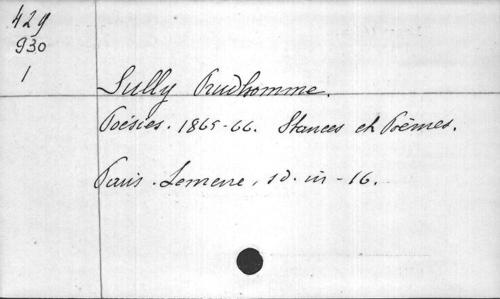 429
930
1
Sully Prudhomme.
Poésies. 1865-66. Stances et Poèmes.
Paris. Lemerre, s d. in-16.